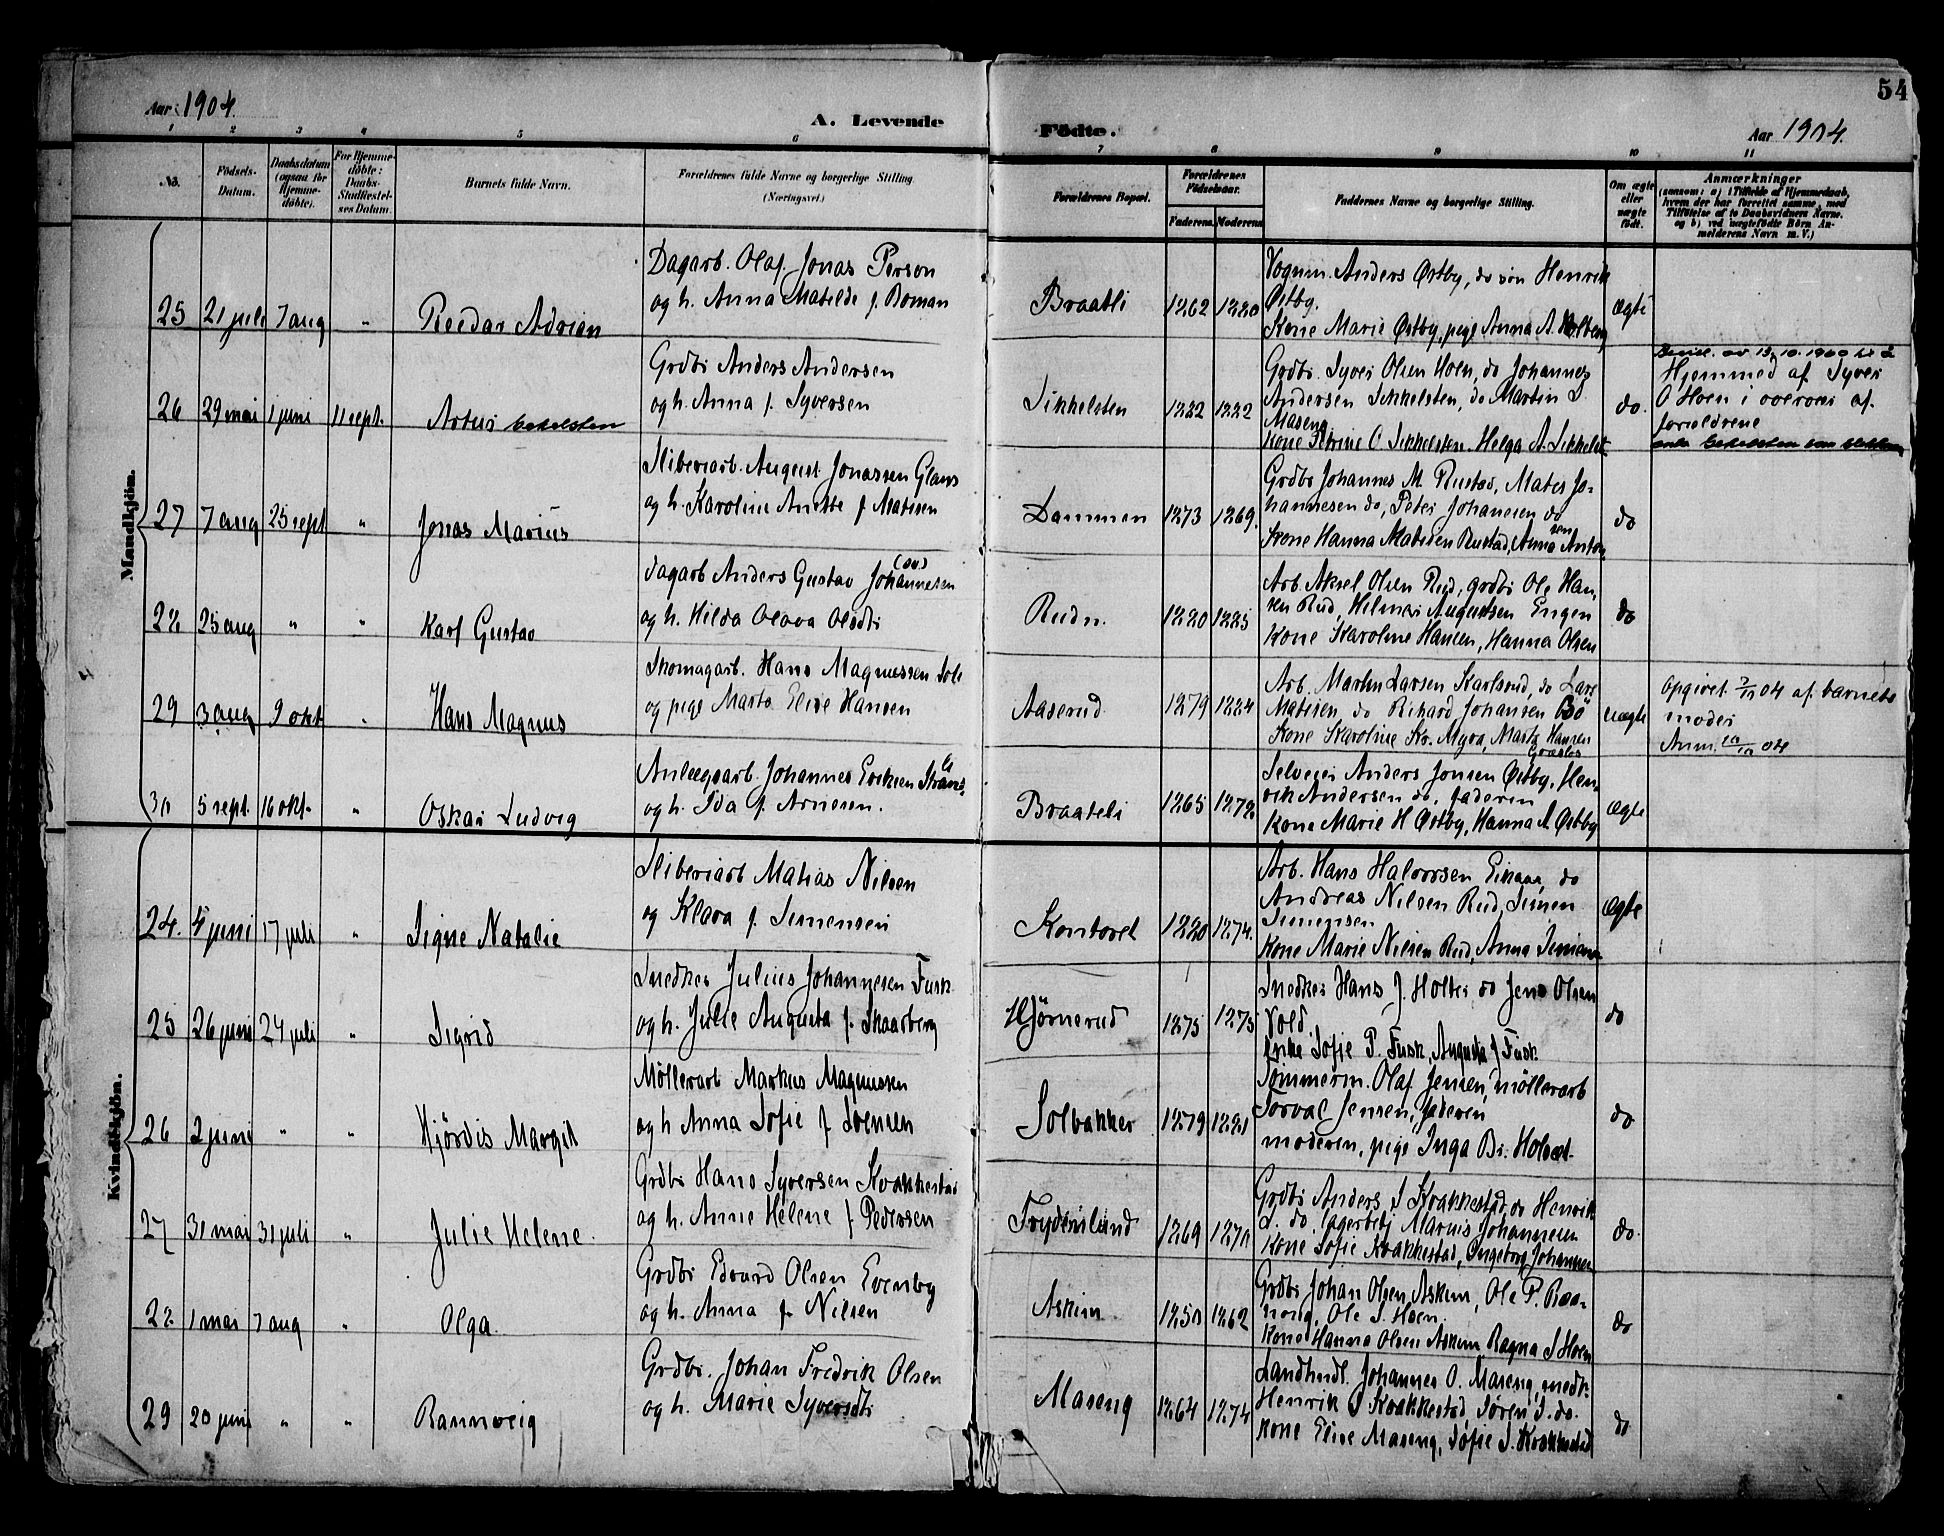 54
Aar 1904.
A. Levende
Födte.
Aar 1904.
1 2 3 4 5 6 7 8 9 10 11
No.
Födsels-Datum.
Daabsdatum (ogsaa for Hjemme-döbte).
For Hjemme-döbte: Daabs-Stadfæstel-ses Datum.
Barnets fulde Navn.
Forældrenes fulde Navne og borgerlige Stilling.
(Næringsvei.)
Forældrenes Bopæl.
Forældrenes Födselsaar.
Faderens. Moderens.
Faddernes Navne og borgerlige Stilling.
Om ægte eller uægte födt.
Anmærkninger
(saasom: a) i Tilfælde af Hjemmedaab,
hvem der har forrettet samme, med
Tilföielse af to Daabsvidners Navne.
og b) ved uægtefödte Börn An-
melderens Navn m. V.)
Mandkjön.
25 21 juli 7 aug " Reidar Adrian
Dagarb. Olaf Jonas Person
og h. Anna Matilde f. Boman
Braatli 1862 1880
Vognm. Anders Østby, do søn Henrik
Østby.
Kone Marie Østby, pige Anna A. Holberg
ægte
26 29 mai 1 juni 11 sept. Artur
Grdbr Anders Andersen
og h. Anna f. Syversen
Sikkelsten 1882 1882
Grdbr. Syver Olsen Hoen, do Johannes
Andersen Sikkelsten, do Martin S.
Maseng
Kone Petrine O Sikkelsten. Helga A. Sikkelst.
do.
Hjemmed af Syver
O Hoen i overvær af
forældrene
27 7 aug 25 sept " Jonas Marius
Sliberiarb. August Jonassen Glans
og h. Karoline Anette f Matisen
Dammen 1873 1869.
Grdbr Johannes M. Rustad, Matis Jo-
hannesen do, Peter Johansen do
Kone Hanna Matisen Rustad, Anna Anton
sen
do
28 25 aug " " Karl Gustav
dagarb Anders Gustav Johannesen
(sv.)
og h. Hilda Olava Olsdtr
Rudn. 1880 1885
Arb. Aksel Olsen Rud, grdbr Ole Han-
sen Rud, Helmer Augustsen Engen
Kone Karoline Hansen, Hanna Olsen
do
29 3 aug 9 okt " Hans Magnus
Skomagarb. Hans Magnussen Soli
og pige Marta Elise Hansen
Aaserud 1879 1884
Arb. Martin Larsen Karlsrud, do Lars
Matisen, do Richard Johansen Bö
Kone Karoline Kr. Myra, Marta Hansen
uægte
Opgivet 7/10 04 af barnets
moder
Anm. 04
30 5 sept. 16 okt. " Oskar Ludvig
Anlægsarb. Johannes Eriksen
og h. Ida f. Arnesen.
Braateli 1865 1872
Selveier Anders Jonsen Østby, Hen-
rik Andersen do, faderen
Kone Marie H Østby, Hanna A. Østby
ægte
Kvindekjön.
24. 5 juni 17 juli " Signe Natalie
Sliberiarb Matias Nilsen
og Klara f. Simensen
Kontoret 1880 1874.
Arb. Hans Halvorsen Eikaas, do
Andreas Nilsen Rud, Simen
Simensen
Kone Marie Nilsen Rud, Anna
ægte
25 26 juni 24 juli " Sigrid
Snedker Julius Johannesen Fusk
og h. Julie Augusta f. Skaarberg
Hjørnerud 1875 1875
Snedker Hans J. Holter do Jens Olsen
Vold.
enke Sofie P. Fusk, Augusta J Fusk
do
26 2 juni " " Hjördis Margit
Möllerarb Markus Magnussen
og h Anna Sofie f Svensen
Solbakken 1879 1881
Tömmerm. Olaf Jensen, möllerarb
Torval Jensen, faderen
moderen, pige Inga Br. Holvet
do
27 31 mai 31 juli " Julie Helene.
Grdbr Hans Syversen Kvakkestad
og h. Anne Helene f. Pedersen
Frydenlund 1869 1870
Grdbr Anders S Kvakkestad, do Henrik
S. do. lagerbetj Marius Johannesen
Kone Sofie Kvakkestad, Ingeborg Johannesen
do.
28 1 mai 7 aug " Olga.
Grdbr Edvard Olsen Evenby
og h. Anna f. Nilsen
Askim 1850 1862
Grdbr Johan Olsen Askim, Ole P. Raa-
nong, Ole S. Hoen.
Kone Hanna Olsen Askim, Ragna S Hoen
do
29 20 juni " " Rannveig
Grdbr. Johan Fredrik Olsen
og h. Marie Syversdtr
Maseng 1864 1874
Landhndl. Johannes O. Maseng, medh.
Henrik S Kvakkestad, Sören S. do.
Kone Elise Maseng, Sofie S. Kvakkestad
do